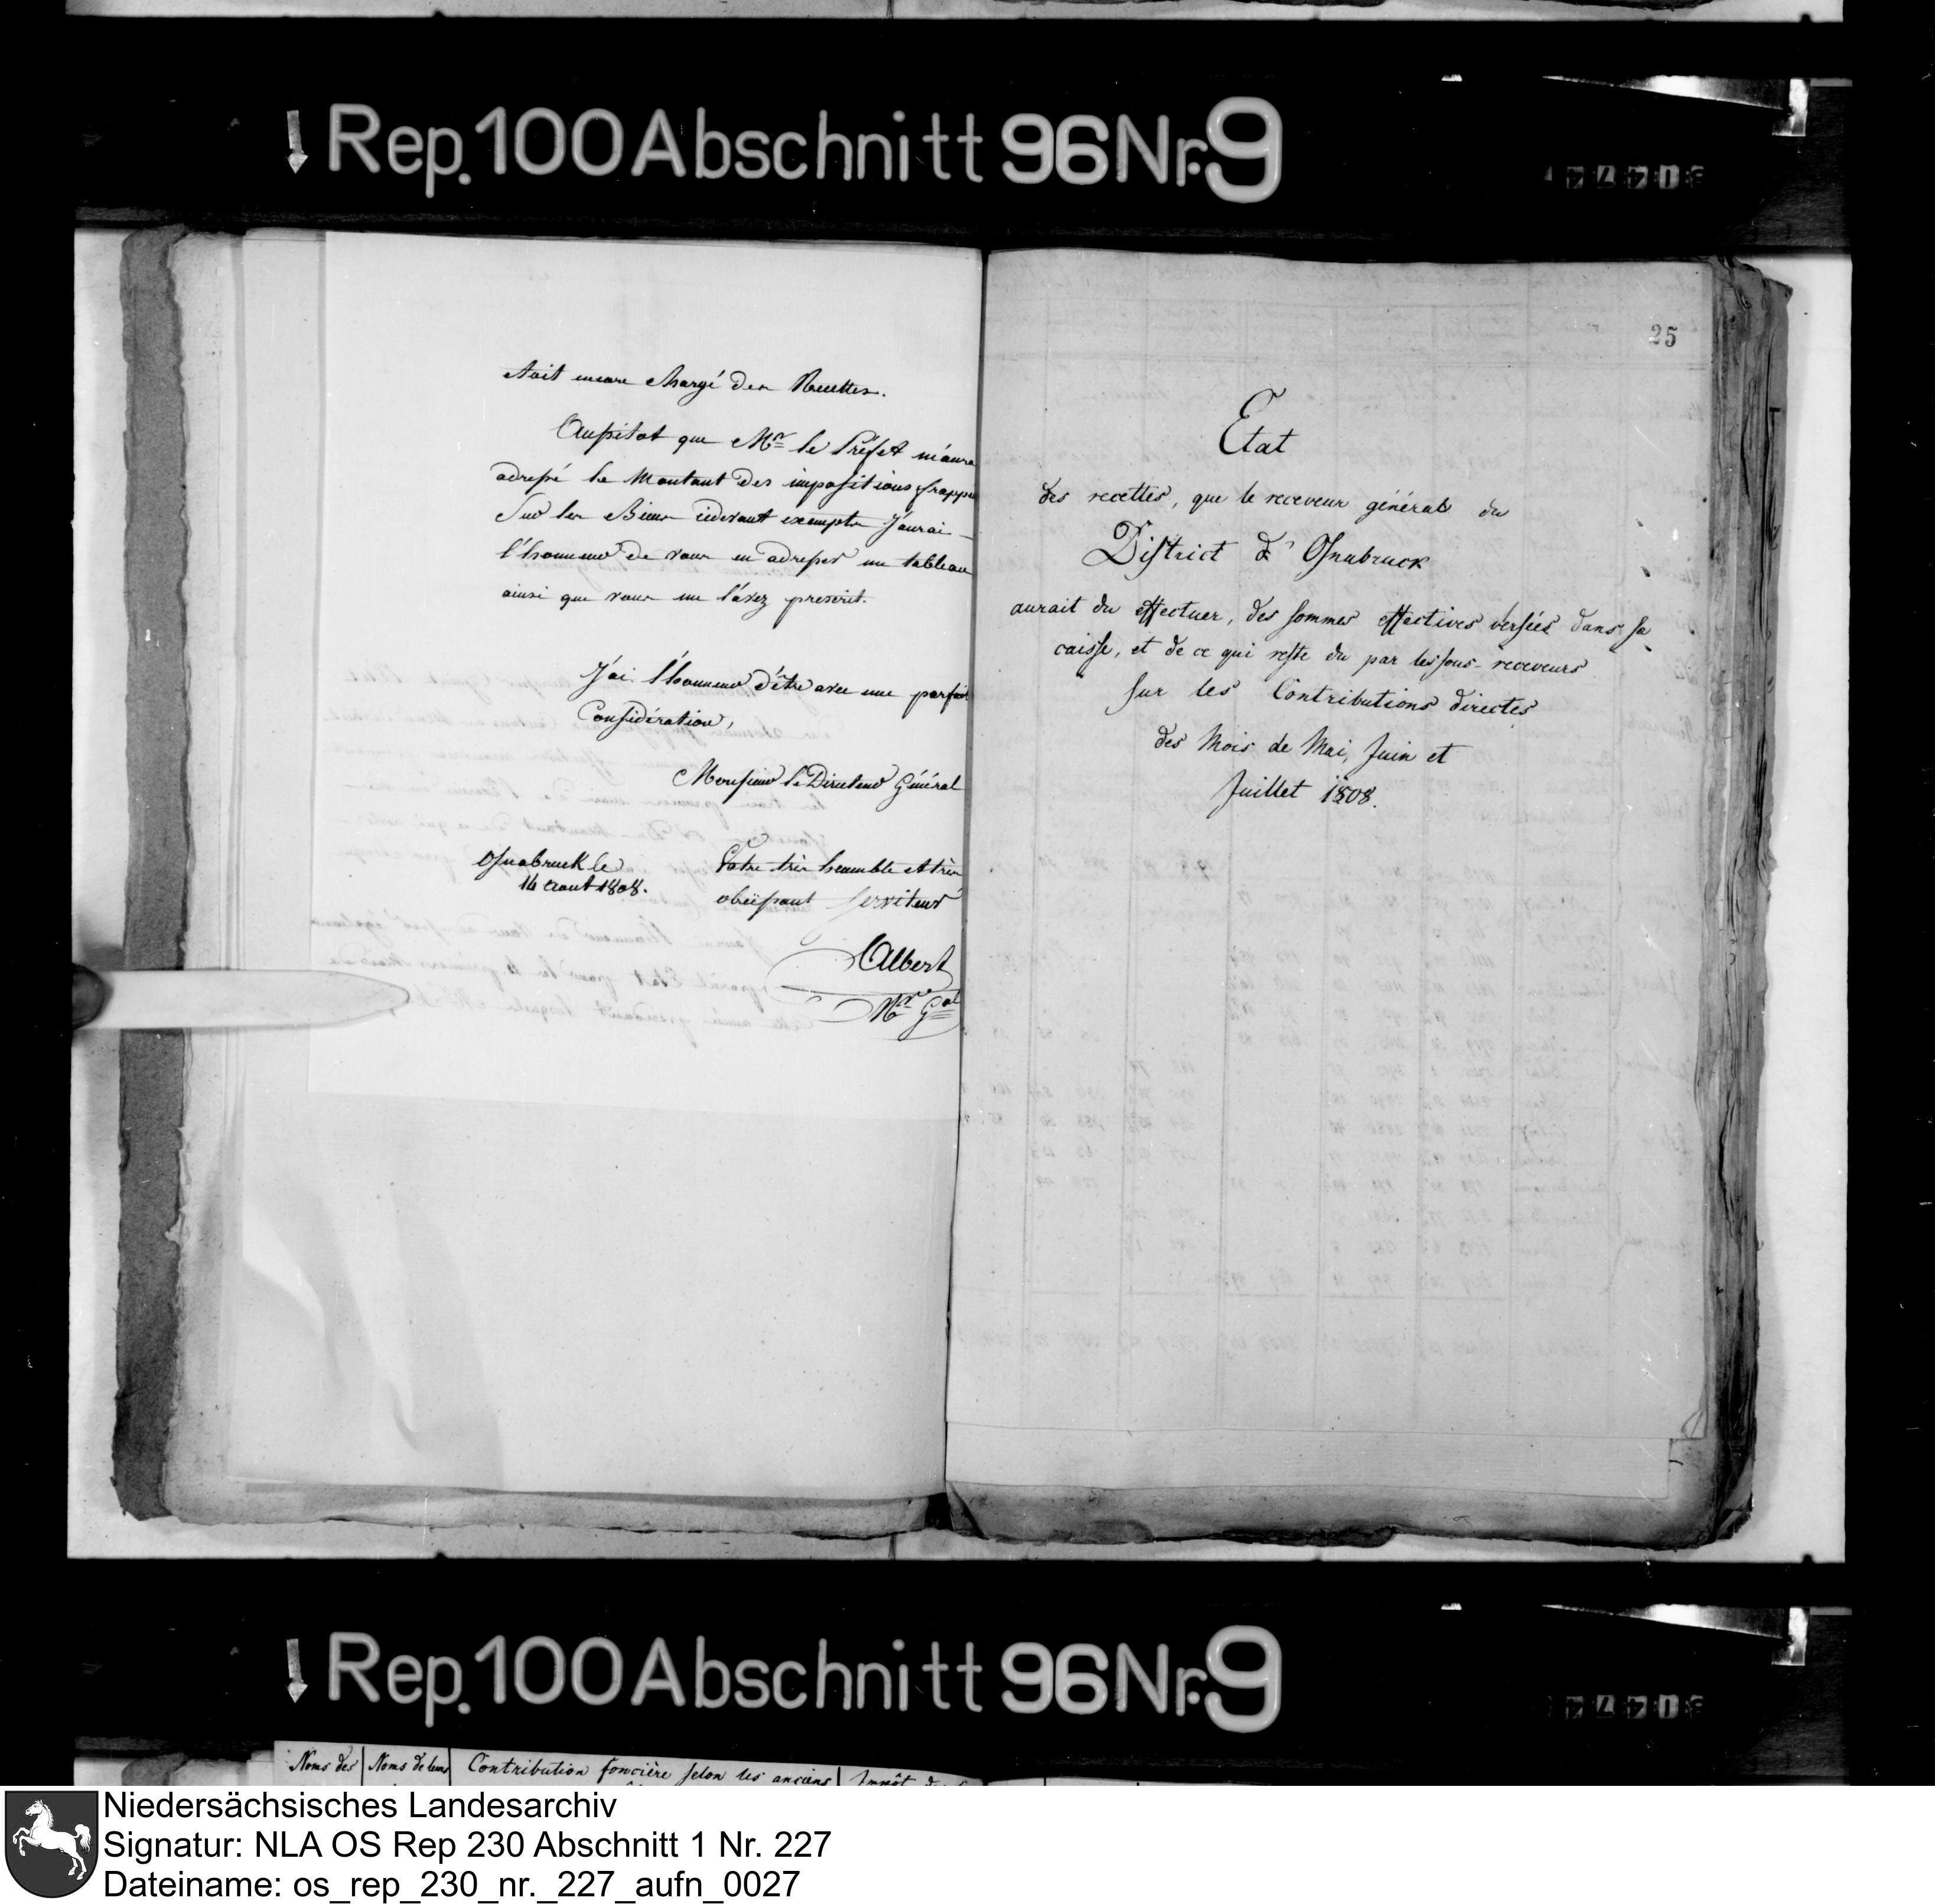 Rep. 100 Abschnitt 96 Nr. 9
étoit encore chargé des Recettes.
Aussitot que Mr le Préfet m'aura
adressé le Montant des impositions frappées
Sur les Biens cidevant exempts J'aurai
l'honneur de vous en adresser un tableau
ainsi que vous me l'avez prescrit.
J'ai l'honneur d'être avec une parfaite
Considération,
Monsieur le Directeur Général
Votre très humble et très
obéissant Serviteur
Osnabruck le
14 aout 1808.
Albert
25
Etat
des recettes, que le receveur général du
District d'Osnabruck
aurait du effectuer, des sommes effectives versées dans sa
caisse, et de ce qui reste du par les sous-receveurs
sur les Contributions directes
des Mois de Mai, Juin et
Juillet 1808.
Rep. 100 Abschnitt 96 Nr. 9
Noms des Noms de leurs Contribution foncière selon les anciens Impôt
Niedersächsisches Landesarchiv
Signatur: NLA OS Rep 230 Abschnitt 1 Nr. 227
Dateiname: os_rep_230_nr._227_aufn_0027